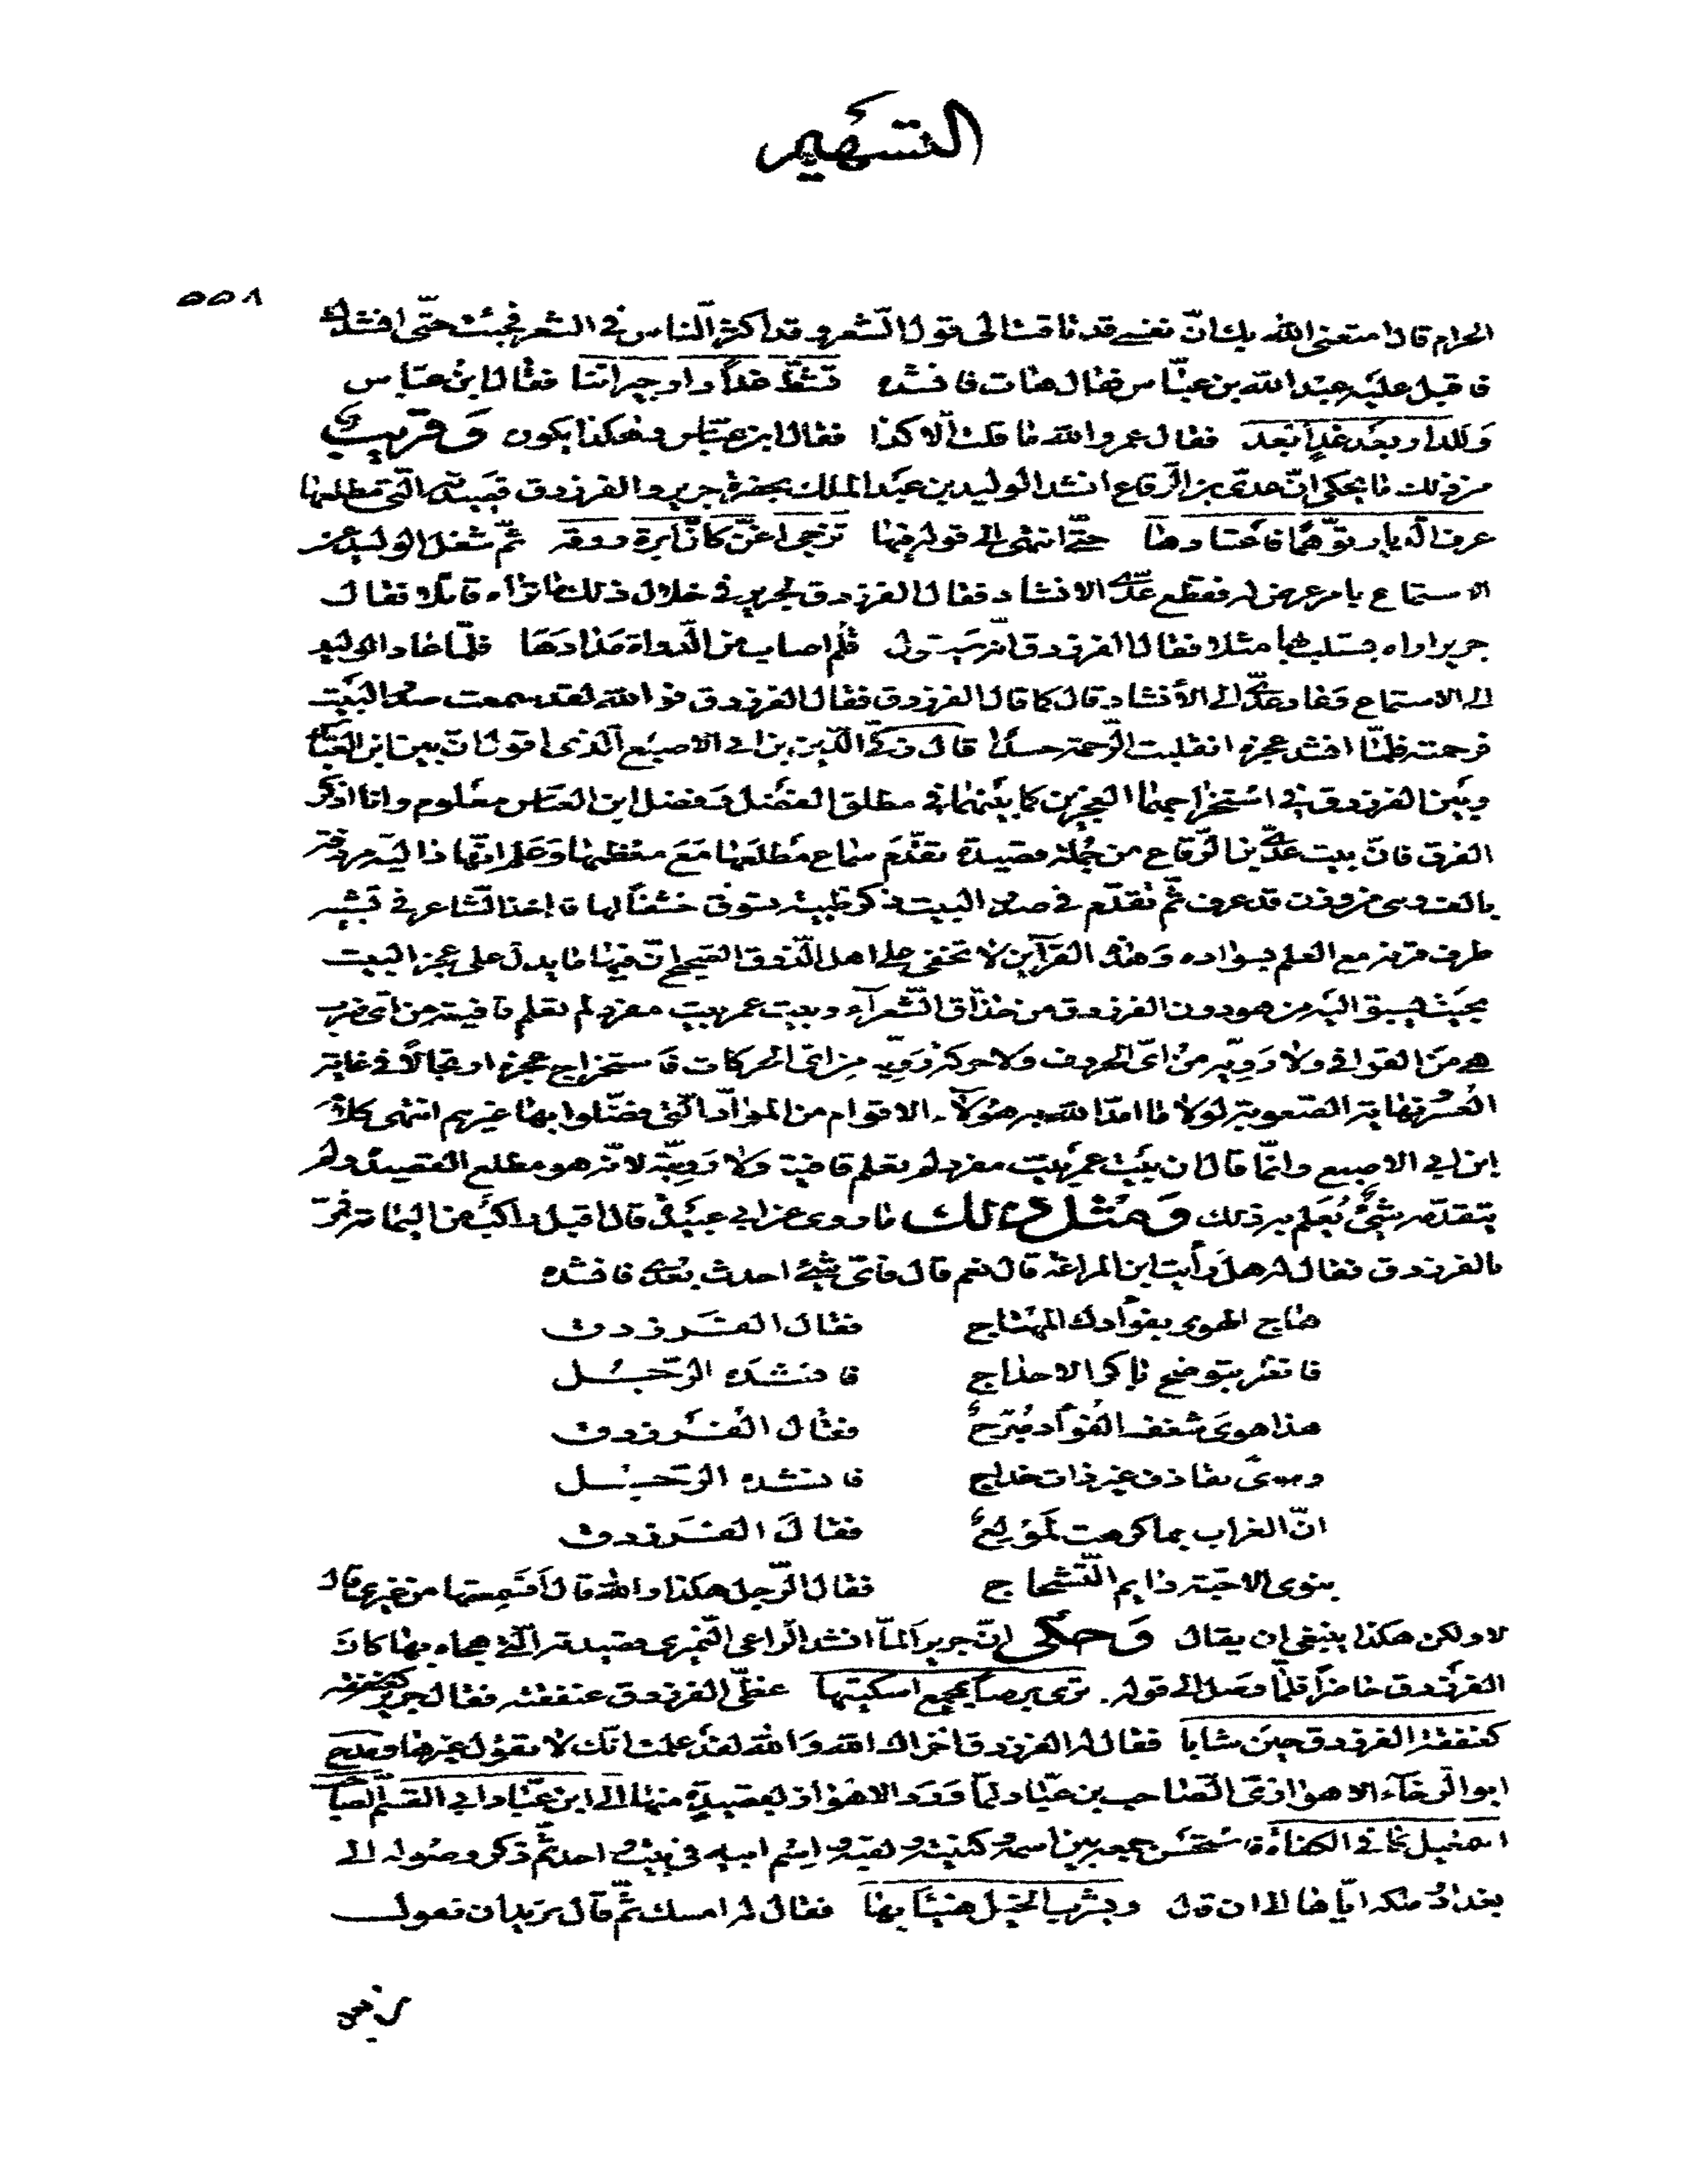 التسهيم
٥٥٨
الحرام قال امتعنى الله بك انّ نفسى قد تاقت الى قول الشعر و قد اكثر الناس فى الشعر فجئت حتّى انشدك
فاقبل عليه عبد الله بن عبّاس فقال هات فانشده تشطّ غداً دار جيراننا فقال ابن عبّاس
وللدار بعد غدٍ ابعد فقال عمر والله ما قلت الّا كذا فقال ابن عبّاس وهكذا يكون وَقريب
من ذلك ما يحكى انّ عدىّ بن الرّقاع انشد الوليد بن عبد الملك بحضرة جرير والفرزدق قصيدته الّتى مطلعها
عرف الدّيار توهّمًا فاعتادها حتّى انتهى الى قوله فيها تزجى اغنّ كانّ ابرة روقه ثمّ شغل الوليد عن
الاستماع بامر عرض له فقطع عدىّ الانشاد فقال الفرزدق لجرير فى خلال ذلك ما تراه قائلا فقال
جرير اراه يستلب بها مثلا فقال الفرزدق انّه سيقول قلم اصاب من الدّواة مدادها فلمّا عاد الوليد
الى الاستماع وَعاد عدىّ الى الأنشاد قال كما قال الفرزدق فقال الفرزدق فو الله لقد سمعت صدر البيت
فرحمته فلمّا انشد عجزه انقلبت الرّحمة حسدًا قال زكىّ الدّين بن ابى الاصبع الّذى اقول انّ بين ابن العبّاس
وبين الفرزدق فى استخراجهما العجزين كما بينهما فى مطلق الفضل وَفضل ابن العبّاس معلوم وانا اذكر
الفرق فانّ بيت عدىّ بن الرّقاع من جملة قصيدة تقدّم سماع مطلعها مَعَ معظمها وَعلم انّها داليّة مردفة
بالف وهى من وزن قد عرف ثمّ تقدّم فى صدر البيت ذكر ظبية تسوق خشفاً لها قد اخذ الشاعر فى تشبيه
طرف قرنه مع العلم بسواده وَهذه القرآين لا تخفى على اهل الذّوق الصحيح انّ فيها ما يدل على عجز البيت
بحيث يسبق اليه من هو دون الفرزدق من حذّاق الشّعرآء وبيت عمر بيت مفرد لم تعلم قافيته من اىّ ضرب
هى من القوافى ولا رَويّه من اىّ الحروف ولا حركة رَويّه من اىّ الحركات فاستخراج عجزه ارتجالاً فى غاية
العُسر ونهاية الصّعوبة لولا ما امدّ الله به هؤلآء الاقوام من الموادّ الّتى فضّلوا بها غيرهم انتهى كلام
ابن ابى الاصبع وانّما قال ان بيت عمر بيت مفرد لم تعلم قافيته ولا رَويّه لانّه هو مطلع القصيدة ولم
يتقدّمه شئٌ يُعلم به ذلك وَمثل ذلك ما روى عن ابى عبيدة قال اقبل راكب من اليمامة فمرّ
بالفرزدق فقال له هل رأيت ابن المراغة قال نعم قال فاىّ شئ احدث بعدى فانشده
هاج الهوى بفؤادك المهتاج فقال الفرزدق
فانظر بتوضح باكر الاحداج فانشده الرّجل
هذا هوىً شغف الفؤاد مُبرّحٌ فقال الفرزدق
ونوىً تقاذف غير ذات خداج فانشده الرّجل
انّ الغراب بما كرهت لمولعٌ فقال الفرزدق
بنوى الاحبّة دايم التّشحاج فقال الرّجل هكذا والله قال أفسمعتها من غيرى قال
لا ولكن هكذا ينبغى ان يقال وَحكى انّ جريرا لمّا انشد الرّاعى النّميرى قصيدته الّتى هجاه بها كان
الفرزدق حاضرًا فلمّا وصل الى قوله ترى برصاً بمجمع اسكتيها غطّى الفرزدق عنفقته فقال جرير
كعنفقة الفرزدق حين شابا فقال له الفرزدق اخزاك الله وَالله لقد علمت انّك لا تقول غيرها ومدح
ابو الرّجاء الاهوازىّ الصّاحب بن عبّاد لمّا وَرَد الاهواز بقصيدةٍ منها الى ابن عبّاد ابى القسم الصّا
اسمعيل كافى الكفاة فاستحسن جمعه بين اسمه و كنيته و لقبه و اسم ابيه فى بيت واحد ثمّ ذكر وصوله الى
بغداد و ملكه ايّاها الى ان قال ويشرب الخيل هنيئا بها فقال له امسك ثمّ قال تريد ان تقول